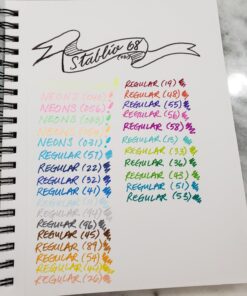 Stabilo 68
NEONS (
NEONS (056)
NEONS (
NEONS (
NEONS (031)
REGULAR (57)
REGULAR (22)
REGULAR (32)
REGULAR (41)
REGULAR (
REGULAR (94)
REGULAR (96)
REGULAR (45)
REGULAR (89)
REGULAR (54)
REGULAR (44)
REGULAR (26)
REGULAR (19)
REGULAR (48)
REGULAR (55)
REGULAR (56)
REGULAR (58)
REGULAR (13)
REGULAR (33)
REGULAR (36)
REGULAR (43)
REGULAR (51)
REGULAR (53)